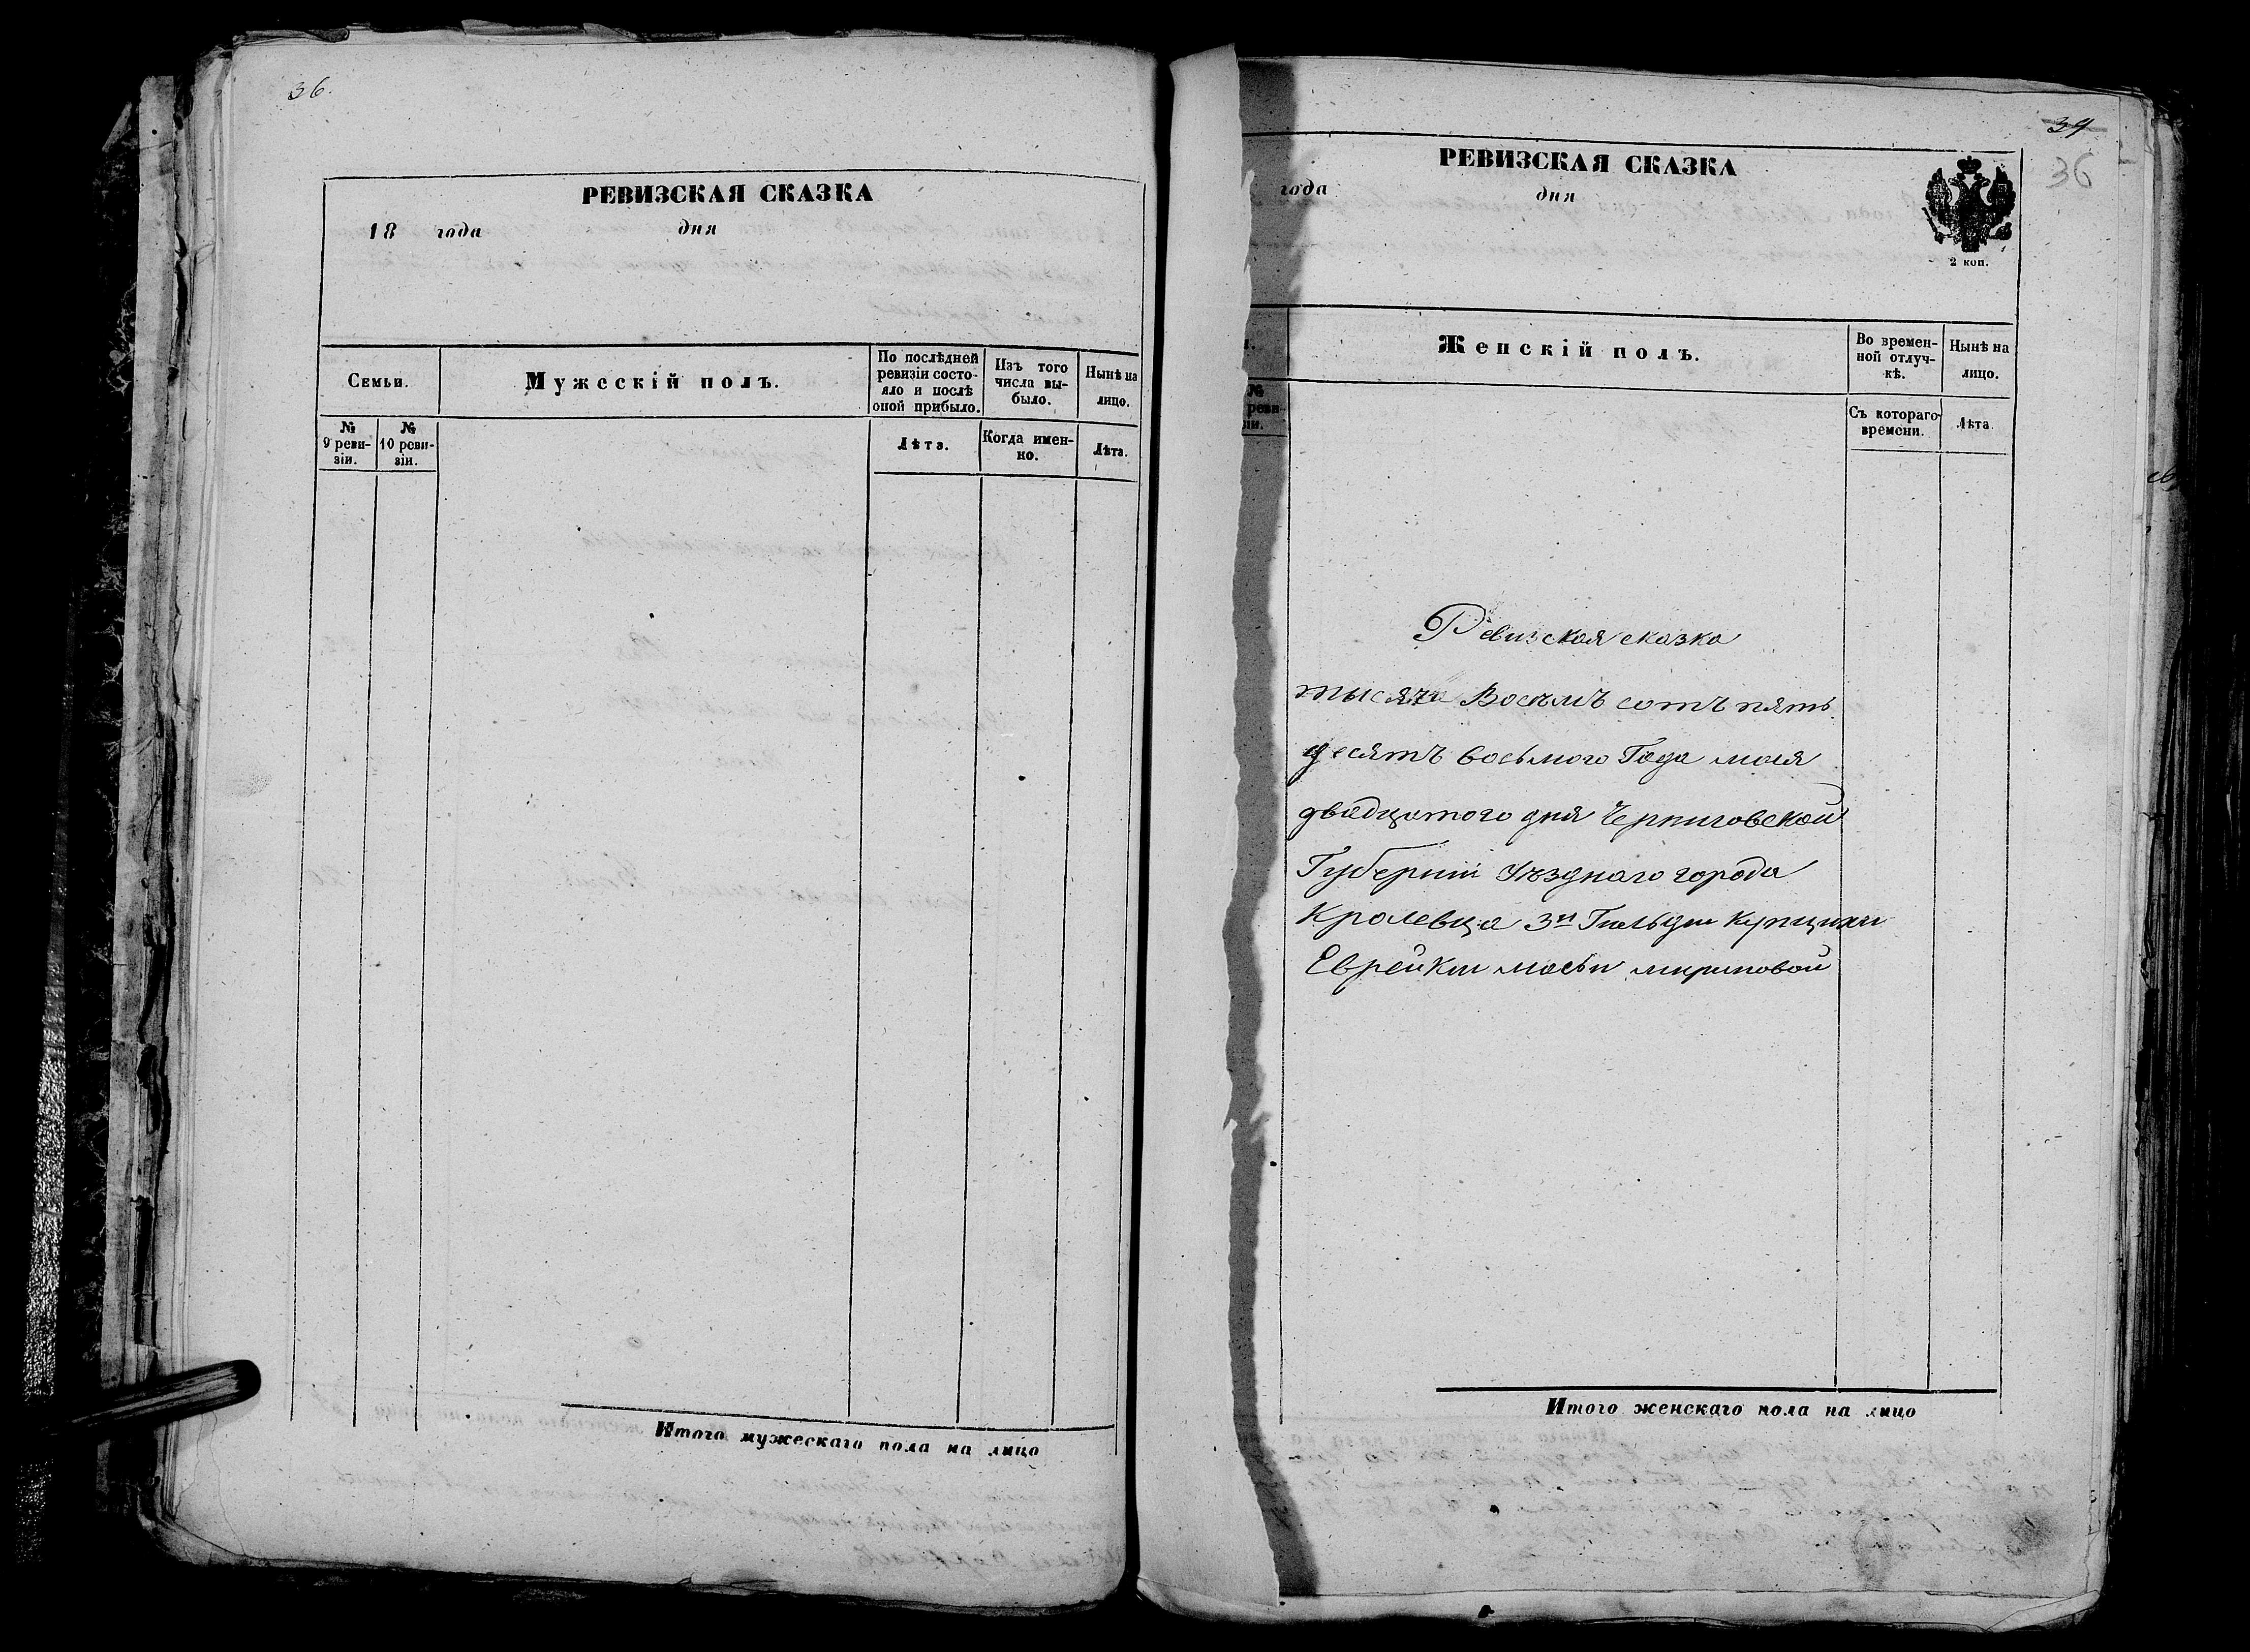 36.
РЕВИЗСКАЯ СКАЗКА
18 года дня
Семьи.
Мужескій полъ.
По послѣдней ревизіи состо-
яло и послѣ оной прибыло.
Изъ того числа вы-
было.
Нынѣ на лицо.
№ 9 реви-
зіи.
№ 10 реви-
зіи.
Лѣта.
Когда имен-
но.
Лѣта.
Итого мужескаго пола на лицо
39
36
РЕВИЗСКАЯ СКАЗКА
года дня
2 коп.
Женскій полъ.
Во времен-
ной отлуч-
кѣ.
Нынѣ на лицо.
№
реви-
зіи.
Съ котораго времени.
Лѣта.
Ревизская сказка
тысяча Восемъ сотъ пять
десятъ восьмого Года мая
двадцатого дня Черниговской
Губерніи Уѣзднаго города
Кролевца 3й Гильдіи купчихи
Еврейки маси мириновой
Итого женскаго пола на лицо